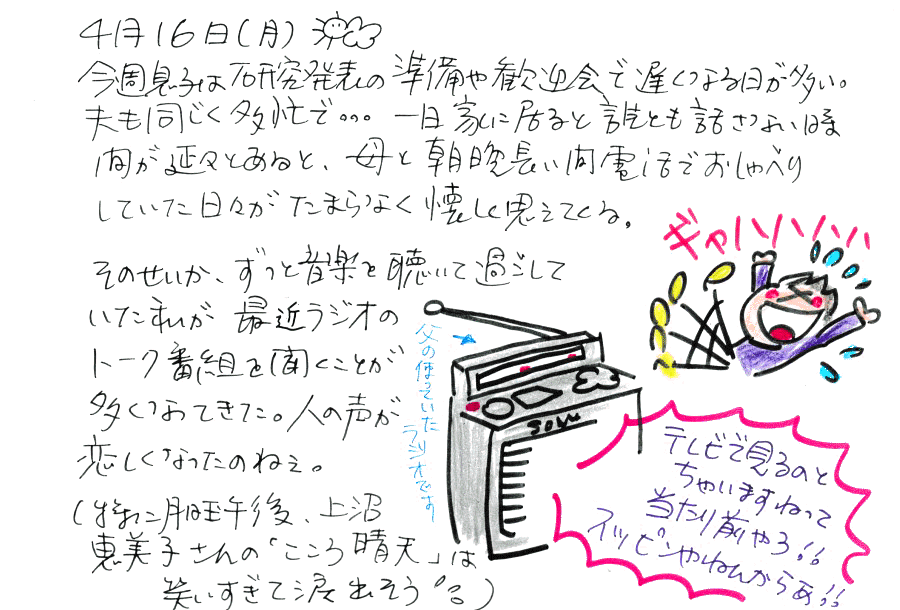 4月16日(月)
今週息子は研究発表の準備や歓迎会で遅くなる日が多い。
夫も同じく多忙で... 一日家に居ると誰とも話さない時
間が延々とあると、母と朝晩長い間電話でおしゃべり
していた日々がたまらなく懐しく思えてくる。
そのせいか、ずっと音楽を聴いて過ごして
いた私が 最近ラジオの
トーク番組を聞くことが
多くなってきた。人の声が
恋しくなったのねぇ。
(特に月曜午後、上沼
恵美子さんの「こころ晴天」は
笑いすぎて涙出そう)
父の使っていた
ラジオです
SONY
ギャハハハハ
テレビで見るのと
ちゃいますねって
当たり前やろ!!
スッピンやねんからぁ!!